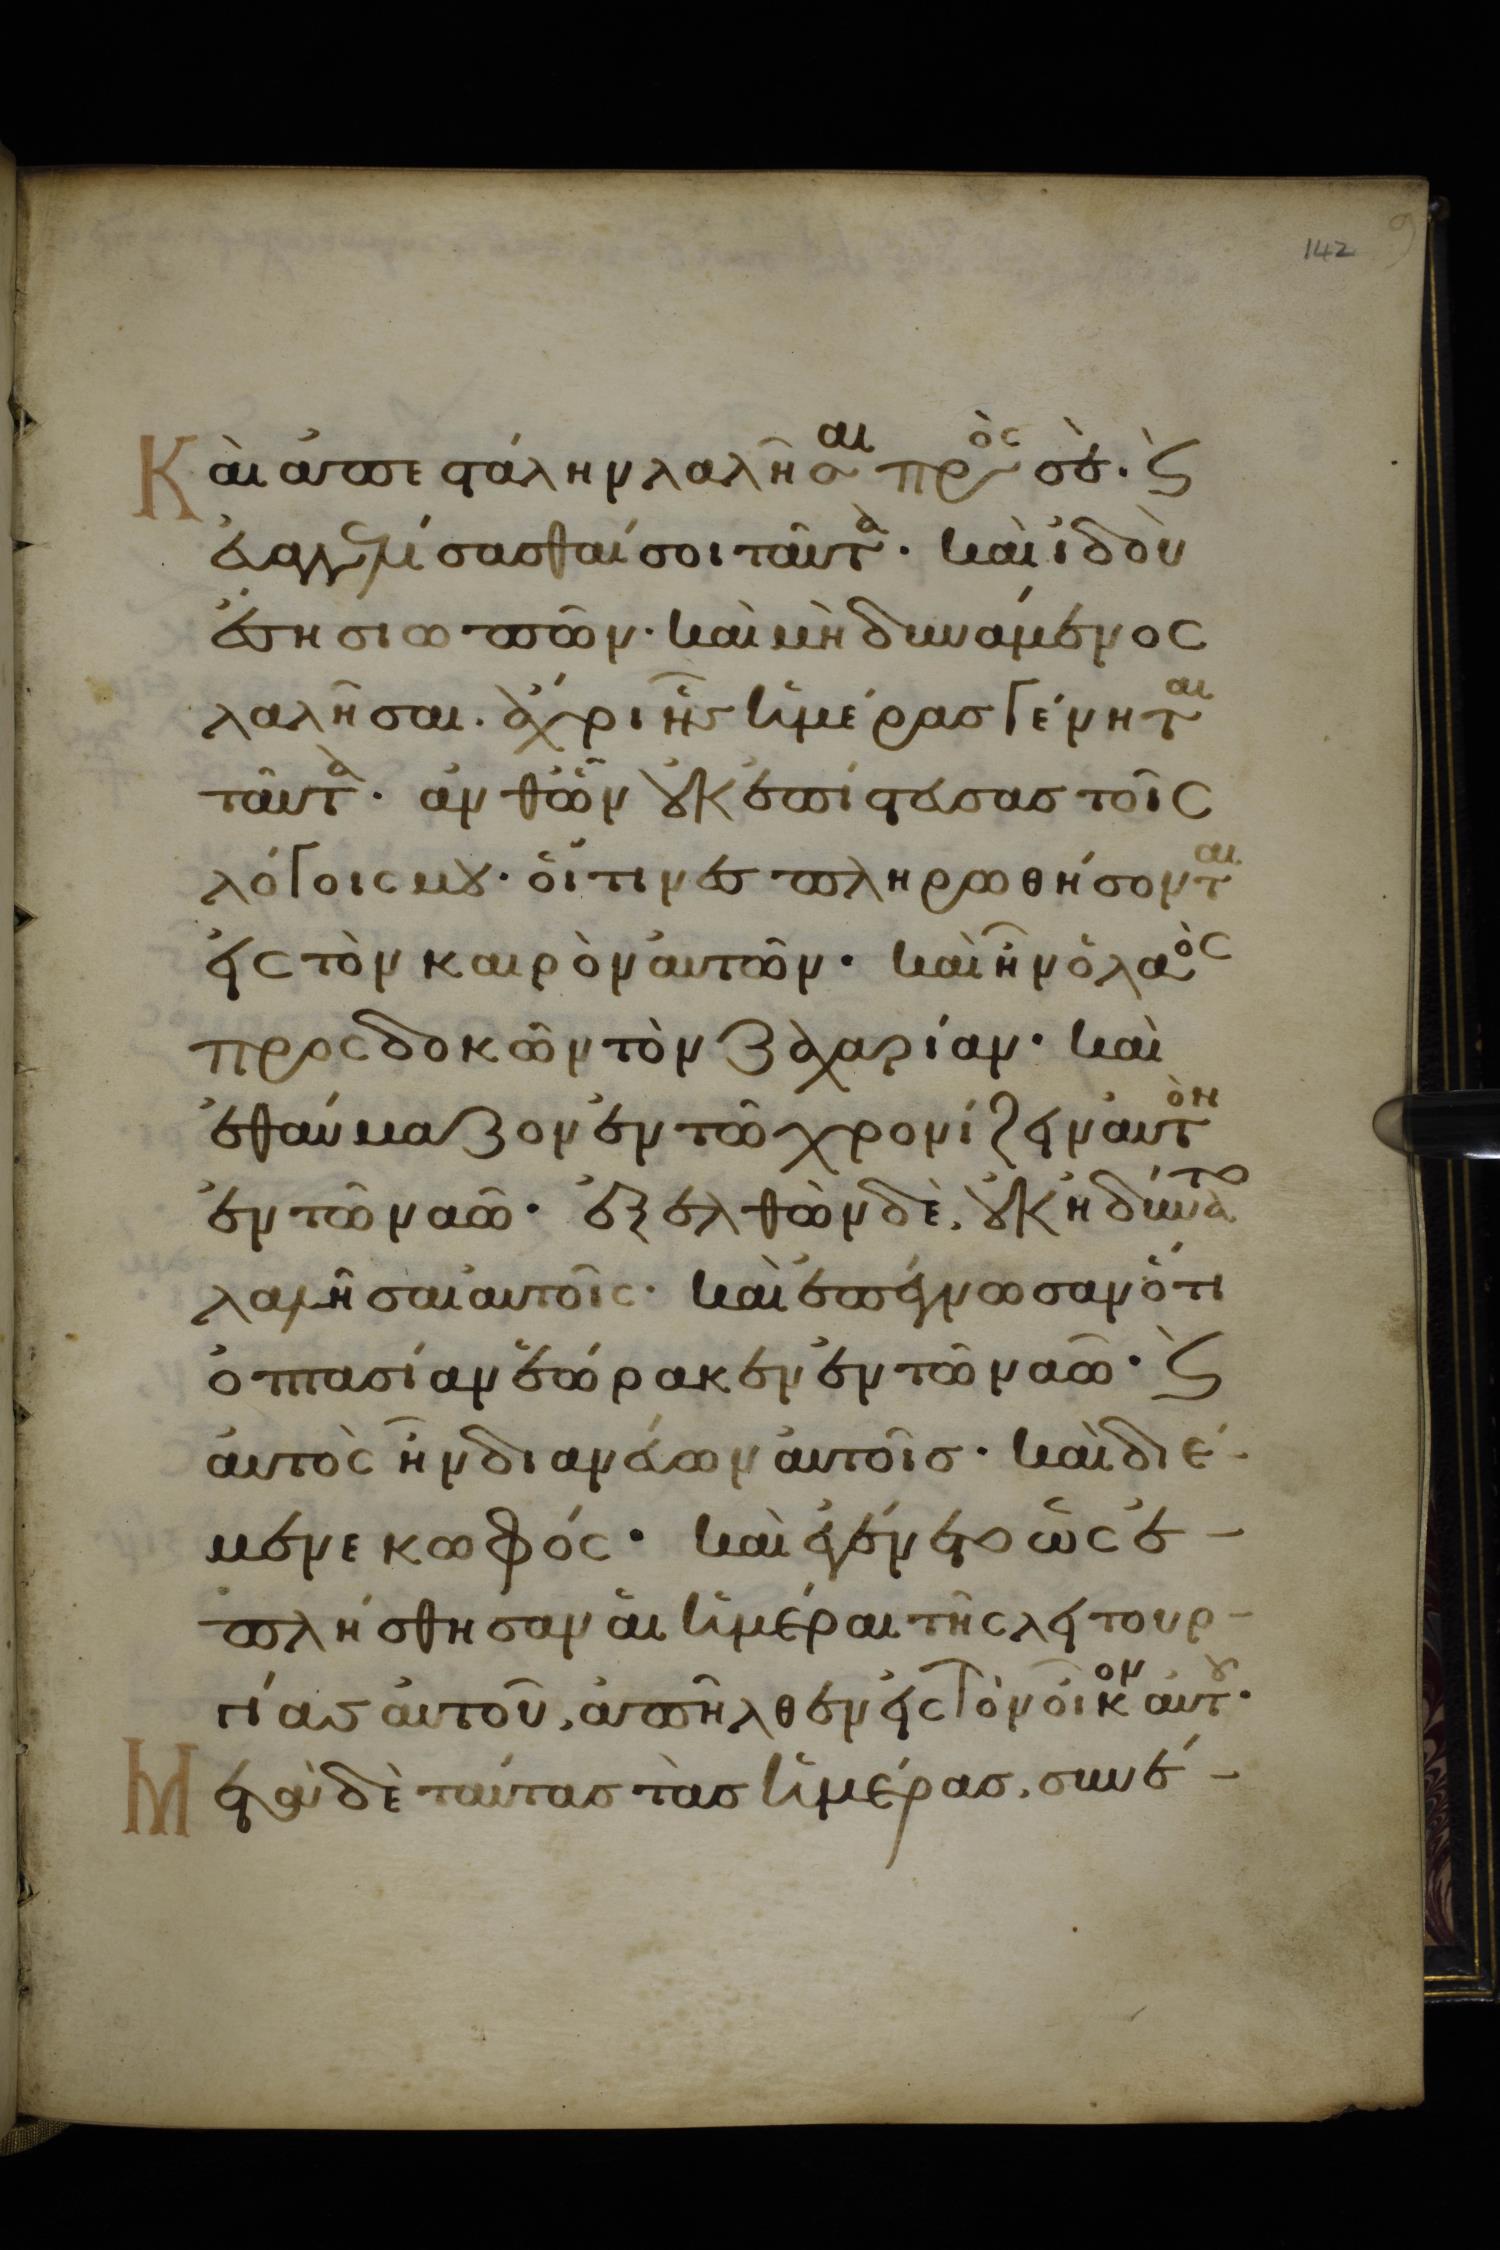 142
Καὶ ἀπεστάλην λαλῆσαι πρὸς σὲ. ϛ
ἐυαγγελίσασθαί σοι ταῦτὰ· καὶ ἰδοὺ
ἔση σιωπῶν· καὶ μὴ δυνάμενος
λαλῆσαι. ἄχρι ἧς ἡμέρας γένηται
ταῦτὰ· ἀνθ ὧν ὀυκ ἐπίστευσας τοῖς
λόγοις μου· ὅίτινες πληρωθήσονται
εἰς τὸν καιρὸν ἀυτῶν· καὶ ἦν ὁ λαὸς
προςδοκῶν τὸν ζαχαρίαν· καὶ
ἐθαύμαζον ἐν τῶ χρονίζειν ἀυτὸν
ἐν τῶ ναῶ· ἐξελθὼν δὲ, ὀυκ ἠδύνατο
λαλῆσαι ἀυτοῖς· καὶ ἐπέγνωσαν ὅτι
ὀπτασίαν ἑώρακεν ἐν τῶ ναῶ· ϛ
ἀυτὸς ἦν διανέυων ἀυτοῖς· καὶ διέ-
μενε κωφός· καὶ ἐγένετο ὡς ἐ-
πλήσθησαν ἁι ἡμέραι τῆς λειτουρ-
γίας ἀυτοῦ, ἀπῆλθεν εἰς τὸν οἶκον ἀυτου·
Μετὰ δὲ ταύτας τὰς ἡμέρας, συνέ-